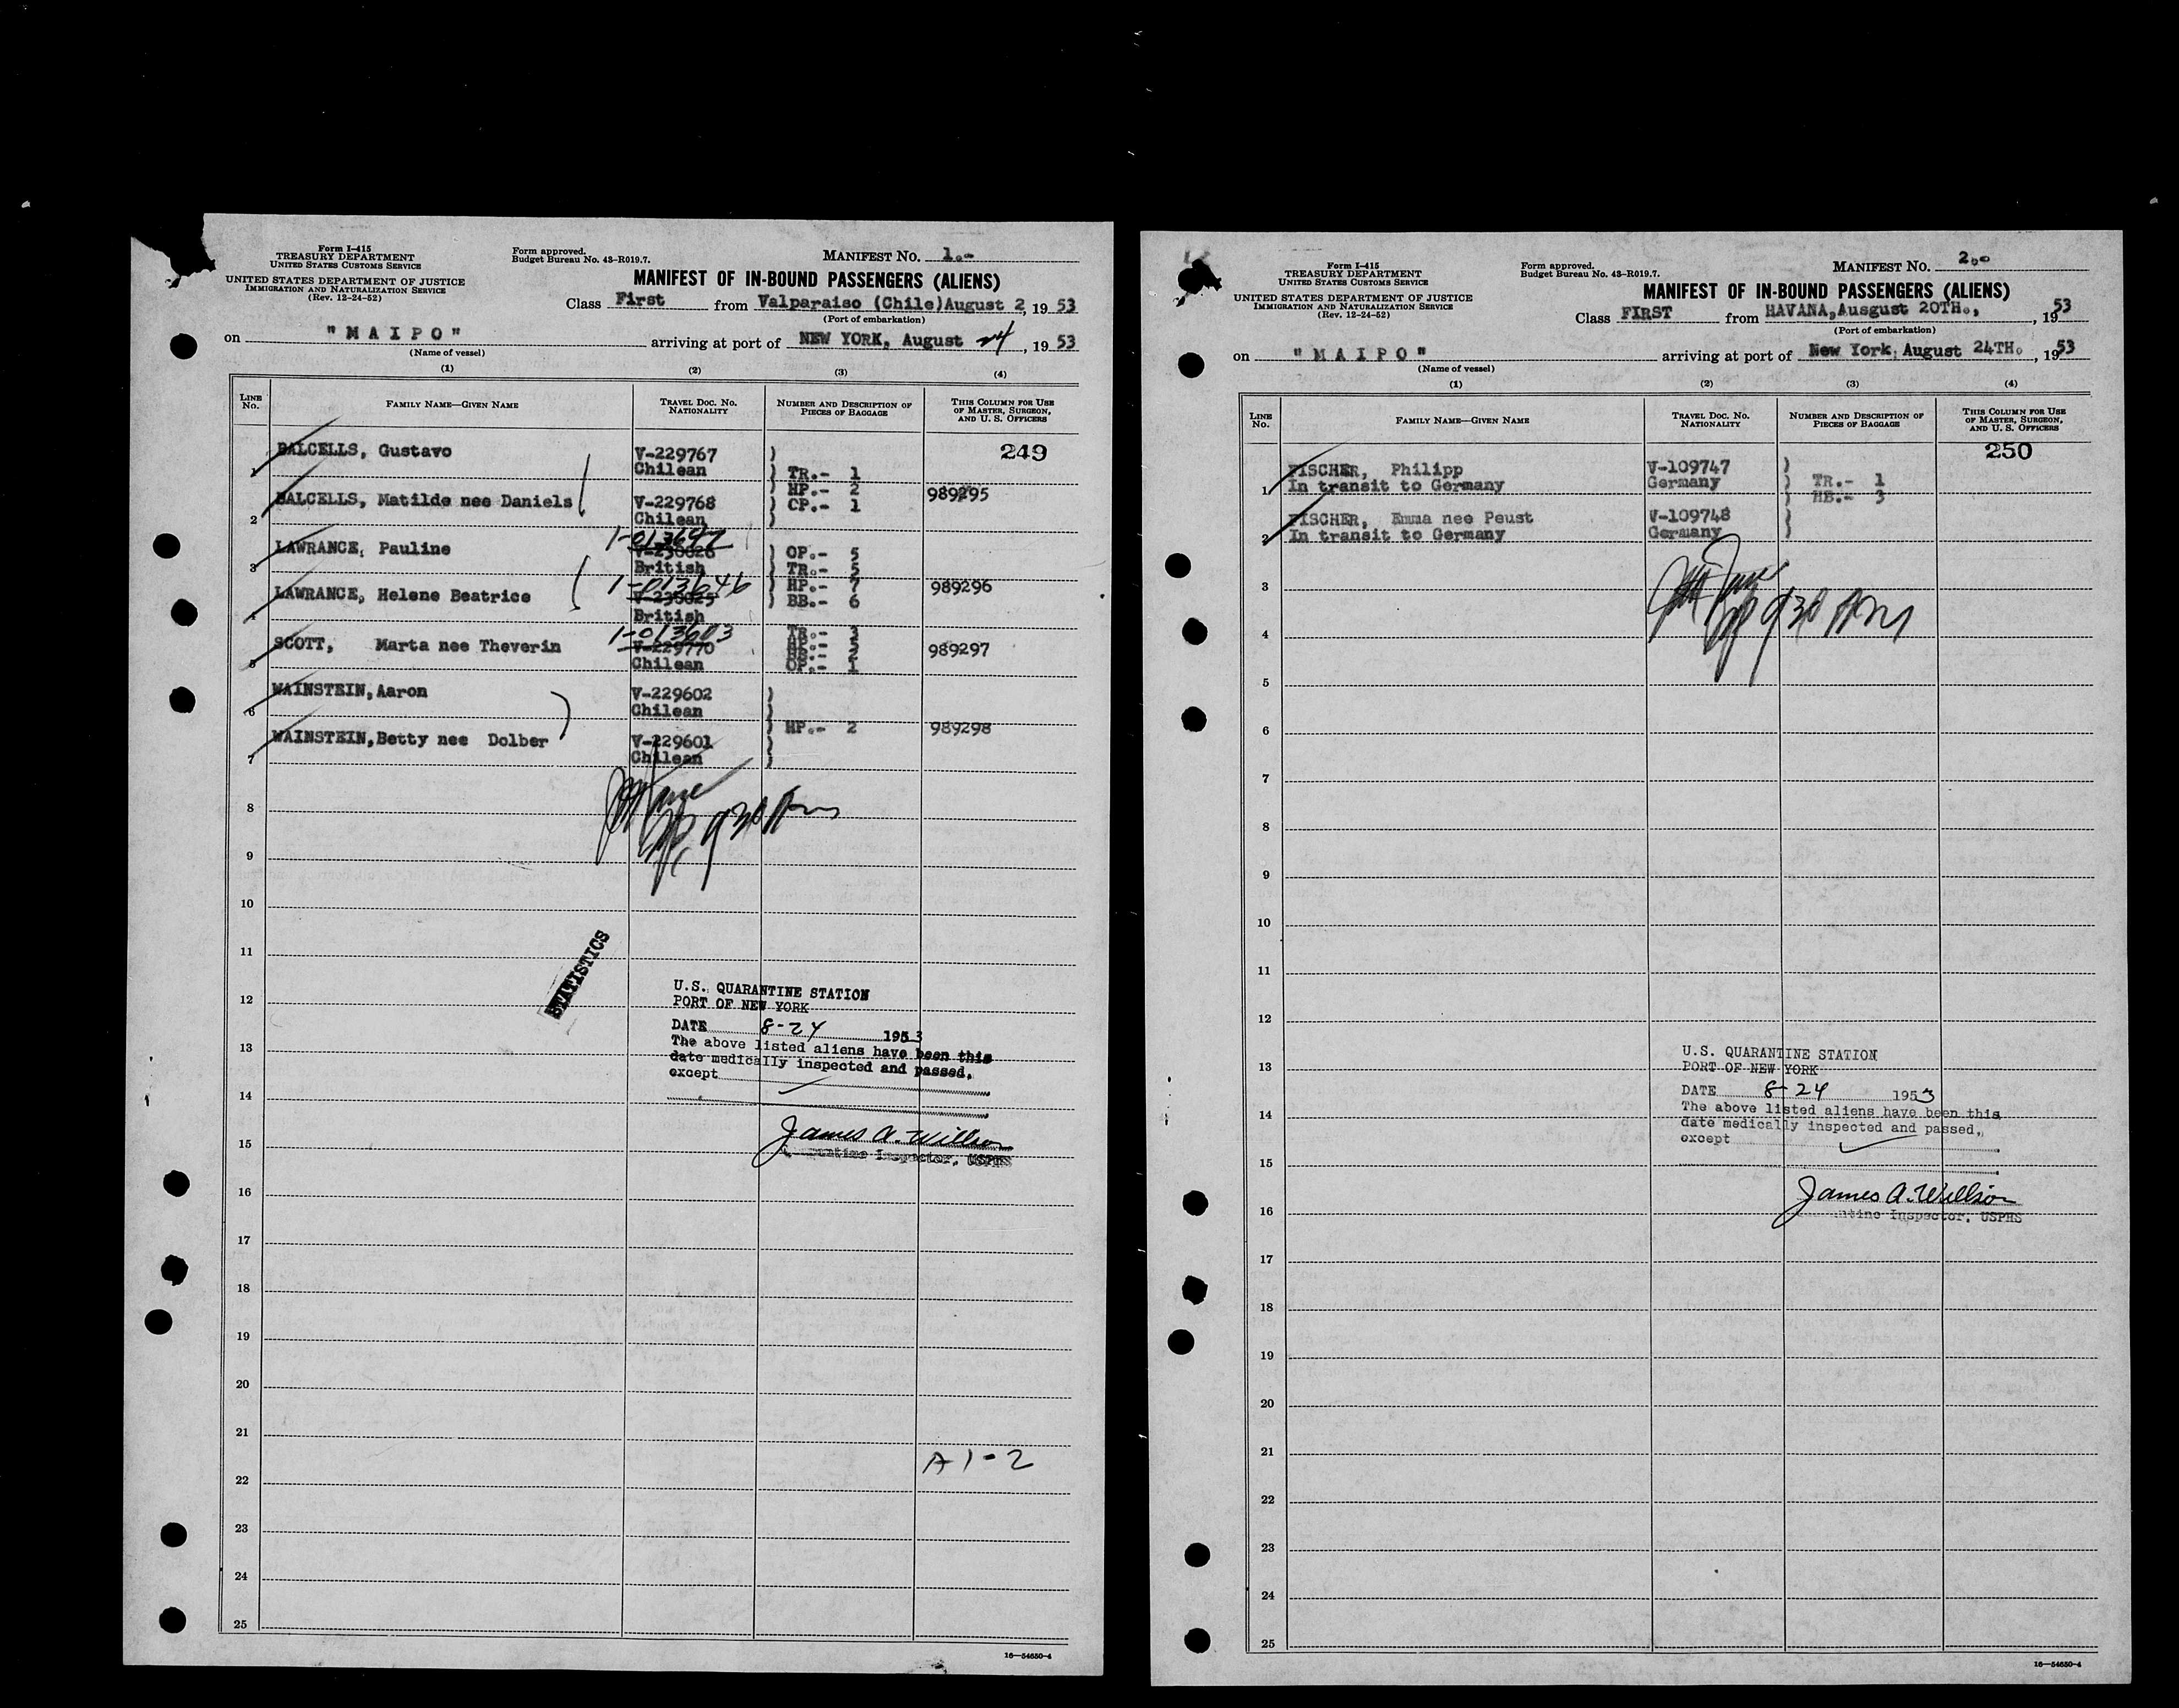 Form I-415
TREASURY DEPARTMENT
UNITED STATES CUSTOMS SERVICE
UNITED STATES DEPARTMENT OF JUSTICE
IMMIGRATION AND NATURALIZATION SERVICE
(Rev. 12-24-52)
Form approved.
Budget Bureau No. 43-R019.7.
MANIFEST No. 1.-
MANIFEST OF IN-BOUND PASSENGERS (ALIENS)
Class First from Valparaiso (Chile) August 2, 19 53
(Port of embarkation)
on "MAIPO" arriving at port of NEW YORK, August 24, 19 53
(Name of vessel)
(1) (2) (3) (4)
LINE No. FAMILY NAME—GIVEN NAME TRAVEL DOC. No. NATIONALITY NUMBER AND DESCRIPTION OF PIECES OF BAGGAGE THIS COLUMN FOR USE OF MASTER, SURGEON, AND U. S. OFFICERS
249
1 BALCELLS, Gustavo V-229767
Chilean ) TR.- 1
) HP.- 2 989295
2 BALCELLS, Matilde nee Daniels V-229768 ) CP.- 1
Chilean )
1-013647
3 LAWRANCE, Pauline V-230026 ) OP.- 5
British ) TR.- 5
1-013646 ) HP.- 7 989296
4 LAWRANCE, Helene Beatrice V-230025 ) BB.- 6
British
1-013603 TR.- 3
5 SCOTT, Marta nee Theverin V-229770 HB.- 2 989297
Chilean OP.- 1
6 WAINSTEIN, Aaron V-229602 )
Chilean )
) HP.- 2 989298
7 WAINSTEIN, Betty nee Dolber V-229601 )
Chilean )
930 Am
8
9
10
11
STATISTICS
12
U.S. QUARANTINE STATION
PORT OF NEW YORK
DATE 8-24 1953
13
The above listed aliens have been this
date medically inspected and passed,
except
14
15
James A. Willson
Quarantine Inspector, USPHS
16
17
18
19
20
21
A 1-2
22
23
24
25
16—54650-4
Form I-415
TREASURY DEPARTMENT
UNITED STATES CUSTOMS SERVICE
UNITED STATES DEPARTMENT OF JUSTICE
IMMIGRATION AND NATURALIZATION SERVICE
(Rev. 12-24-52)
Form approved.
Budget Bureau No. 43-R019.7.
MANIFEST No. 2.-
MANIFEST OF IN-BOUND PASSENGERS (ALIENS)
Class FIRST from HAVANA, Ausgust 20TH., , 19 53
(Port of embarkation)
on "MAIPO" arriving at port of New York, August 24TH. , 19 53
(Name of vessel)
(1) (2) (3) (4)
LINE No. FAMILY NAME—GIVEN NAME TRAVEL DOC. No. NATIONALITY NUMBER AND DESCRIPTION OF PIECES OF BAGGAGE THIS COLUMN FOR USE OF MASTER, SURGEON, AND U. S. OFFICERS
250
FISCHER, Philipp V-109747 )
1 In transit to Germany Germany ) TR.- 1
) HB.- 3
FISCHER, Emma nee Peust V-109748 )
2 In transit to Germany Germany )
3
930 Am
4
5
6
7
8
9
10
11
12
U.S. QUARANTINE STATION
13
PORT OF NEW YORK
DATE 8-24 1953
The above listed aliens have been this
14
date medically inspected and passed,
except
15
James A. Willson
16
Quarantine Inspector, USPHS
17
18
19
20
21
22
23
24
25
16—54650-4